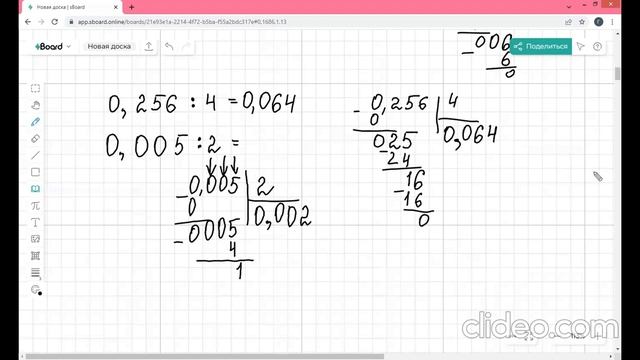 Новая доска | sBoard
app.sboard.online/boards/21e93e1a-2214-4f72-b5ba-f55a2bdc317e#0;1686;1.13
sBoard
Новая доска
Поделиться
006
- 6
0
0,256 : 4 = 0,064
0,005 : 2 =
- 0,256 | 4
0 | 0,064
025
- 24
16
- 16
0
- 0,005 | 2
0 | 0,002
- 0005
4
1
clideo.com